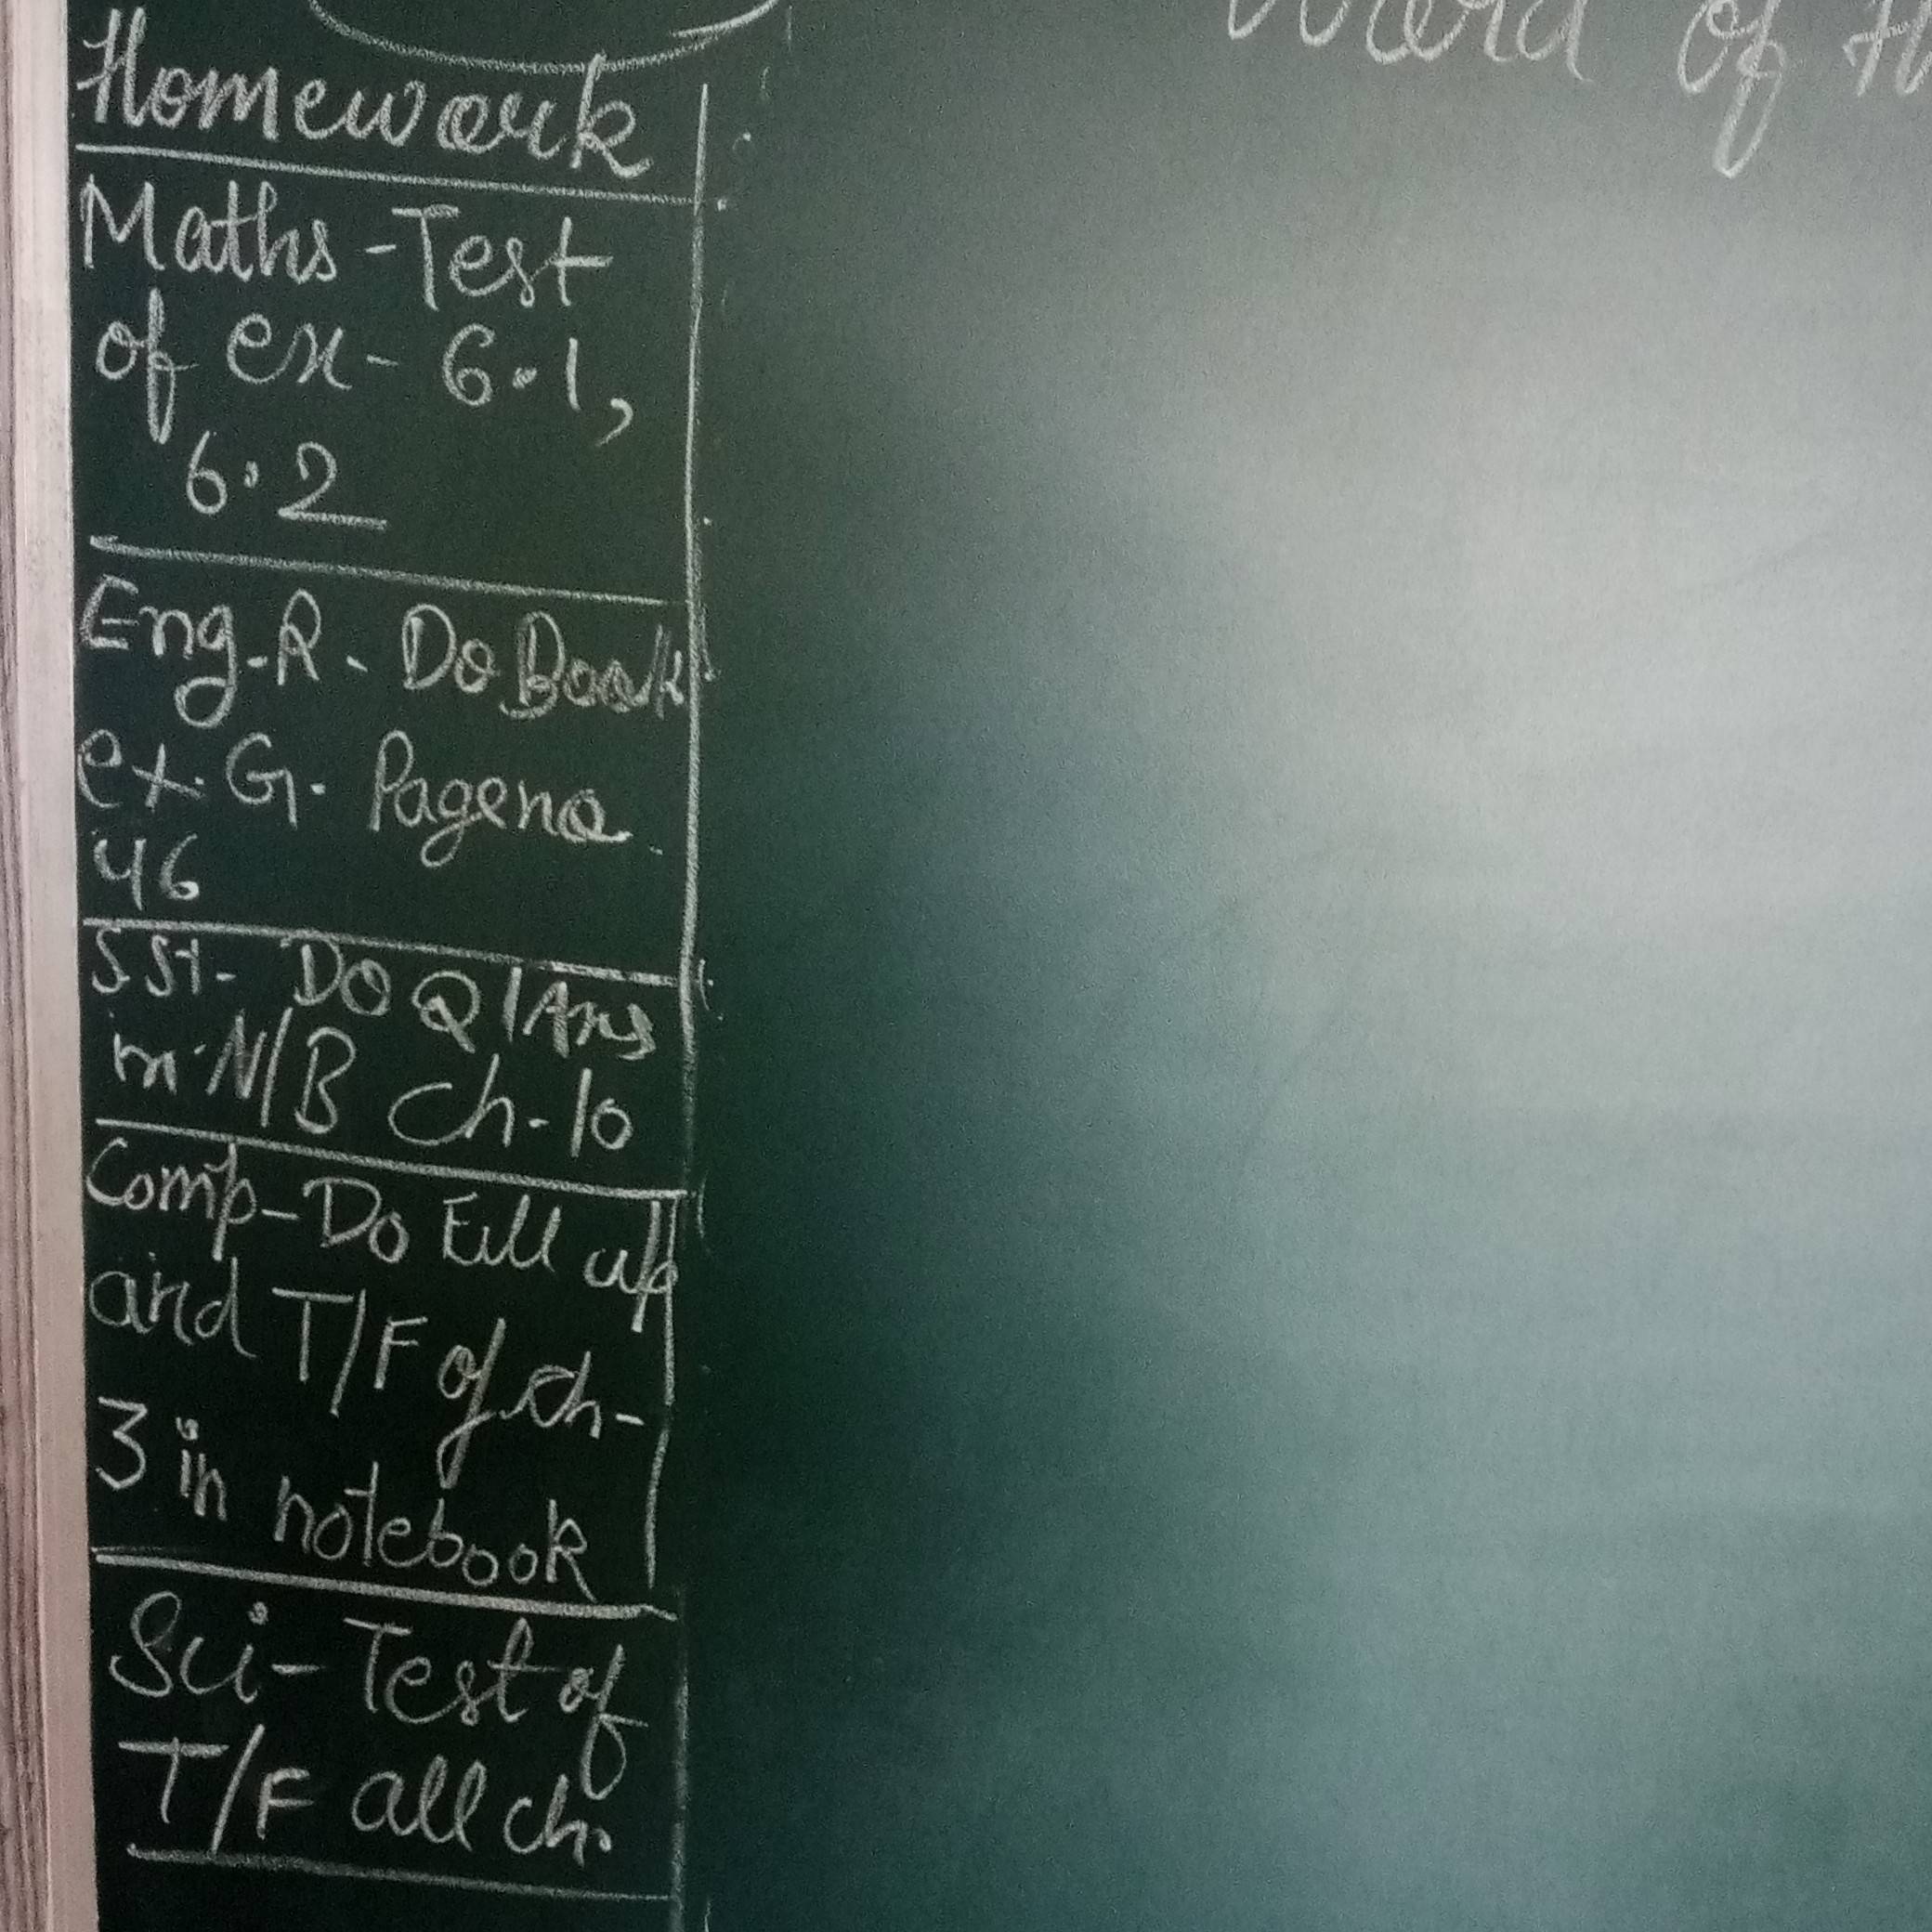 Word of th
Homework
Maths - Test
of ex - 6.1,
6.2
Eng.R - Do Book
ex. G. Page no
46
S St - Do Q/Ans
in N/B Ch-10
Comp - Do Fill up
and T/F of ch-
3 in notebook
Sci - Test of
T/F all ch.